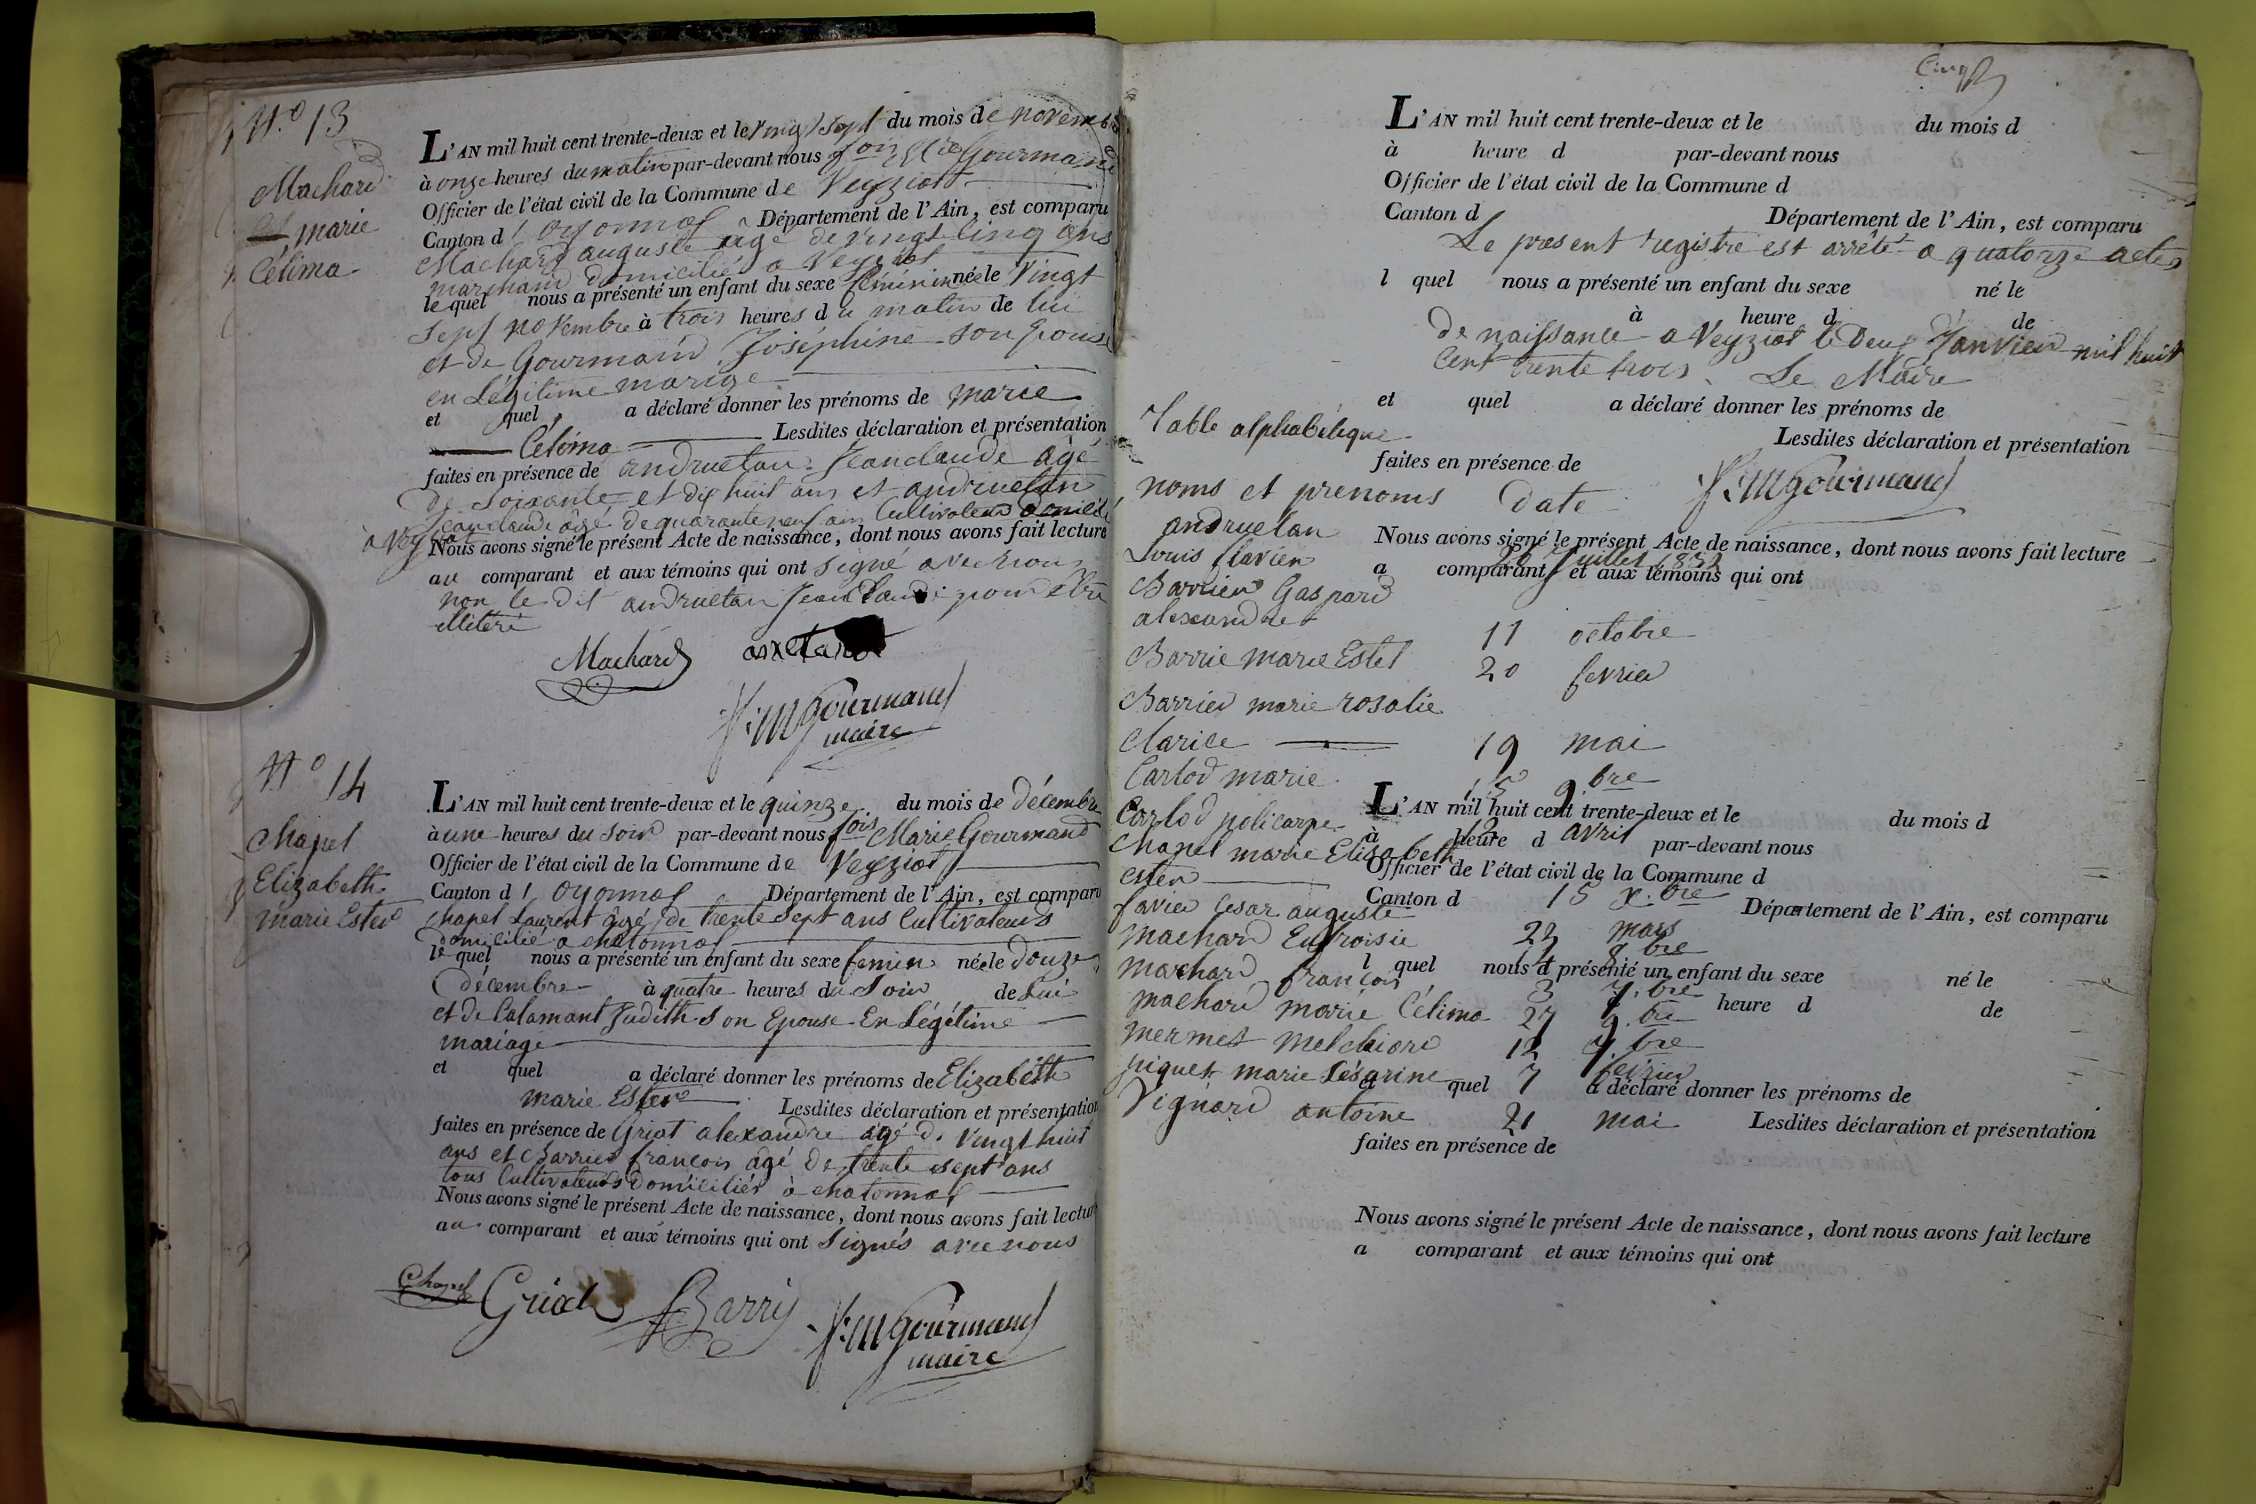 N.o 13
Machard
marie
Célima
L'AN mil huit cent trente-deux et le vingt sept du mois de novembre
à onze heures du matin par-devant nous fois Gourmand
Officier de l'état civil de la Commune de Veyziat
Canton d'oyonnas Département de l'Ain, est comparu
Machard auguste âgé de vingt cinq ans
marchand domicilié a Veyziat
le quel nous a présenté un enfant du sexe féminin née le vingt
sept novembre à trois heures du matin de lui
et de Gourmand Joséphine son épouse
en Légitime mariage
et quel a déclaré donner les prénoms de marie
Célima Lesdites déclaration et présentation
faites en présence de andruetan Jeanclaude âgé
de Soixante et dix huit ans et andruetan
Jeanclaude âgé de quarante neuf ans Cultivateurs domicilié
à Veyziat
Nous avons signé le présent Acte de naissance, dont nous avons fait lecture
au comparant et aux témoins qui ont signé avec nous
non le dit andruetan Jean Claude pour être
illitéré
Machard
f: M Gourmand
maire
N.o 14
Chapel
Elizabeth
marie Ester
L'AN mil huit cent trente-deux et le quinze du mois de décembre
à une heures du soir par-devant nous fois Marie Gourmand
Officier de l'état civil de la Commune de Veyziat
Canton d'oyonnas Département de l'Ain, est comparu
Chapel Laurent âgé de trente sept ans Cultivateurs
domicilié a chatonnas
le quel nous a présenté un enfant du sexe feminin née le douze
décembre à quatre heures du Soir de Lui
et de Calamant Judith Son Epouse En Légitime
mariage
et quel a déclaré donner les prénoms de Elizabeth
marie Ester Lesdites déclaration et présentation
faites en présence de Griot alexandre âgé de vingt huit
ans et Barrier françois âgé de trente sept ans
tous Cultivateurs Domiciliés à chatonnas
Nous avons signé le présent Acte de naissance, dont nous avons fait lecture
au comparant et aux témoins qui ont Signés avec nous
Chapel
Barry
f: M Gourmand
maire
Cinq
L'AN mil huit cent trente-deux et le du mois d
à heure d par-devant nous
Officier de l'état civil de la Commune d
Canton d Département de l'Ain, est comparu
Le present registre est arrêté a quatorze actes
l quel nous a présenté un enfant du sexe né le
à heure d de
De naissance a Veyziat le Deux Janvier mil huit
Cent trente trois. Le Maire
et quel a déclaré donner les prénoms de
Table alphabétique
Lesdites déclaration et présentation
faites en présence de
f: M Gourmand
noms et prenoms Date
andruetan
Nous avons signé le présent Acte de naissance, dont nous avons fait lecture
Louis flavien Juillet 1832
a comparant et aux témoins qui ont
Barrier Gaspard
alexandre 11 octobre
Barrie marie Ester 20 fevrier
Barrier marie rosalie
Clarice 19 mai
Carlod marie 15 9.bre
L'AN mil huit cent trente-deux et le du mois d
Carlod policarpe avril
à heure d par-devant nous
Chapel marie Elisabeth
Officier de l'état civil de la Commune d
ester 15 X.bre
Canton d Département de l'Ain, est comparu
favier Cesar auguste 22 mars
machard Eufroisie 8 bre
l quel nous a présenté un enfant du sexe né le
machard françois 3 7.bre
heure d de
machard marie Célima 27 9.bre
mermet melchiord 12 7.bre
piquet marie Césarine 7 février
quel a déclaré donner les prénoms de
Vignard antoine 21 mai
Lesdites déclaration et présentation
faites en présence de
Nous avons signé le présent Acte de naissance, dont nous avons fait lecture
a comparant et aux témoins qui ont